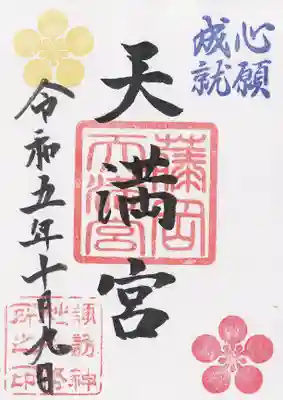 心願
成就
天満宮
藤岡
天満宮
令和五年十月九日
諏訪神
所之印